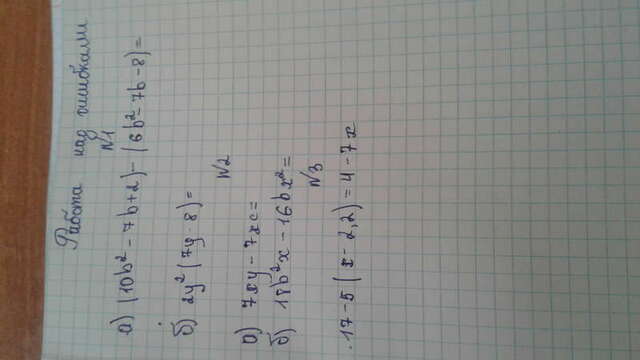 Работа над ошибками
№1
а) (10b² - 7b + 2) - (6b² - 7b - 8) =
б) 2y² (7y - 8) =
№2
а) 7xy - 7xc =
б) 18b²x - 16bx² =
№3
17 - 5 (x - 2,2) = 4 - 7x